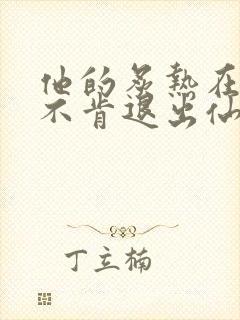 他的炙热在
不肯退出仙
丁立楠